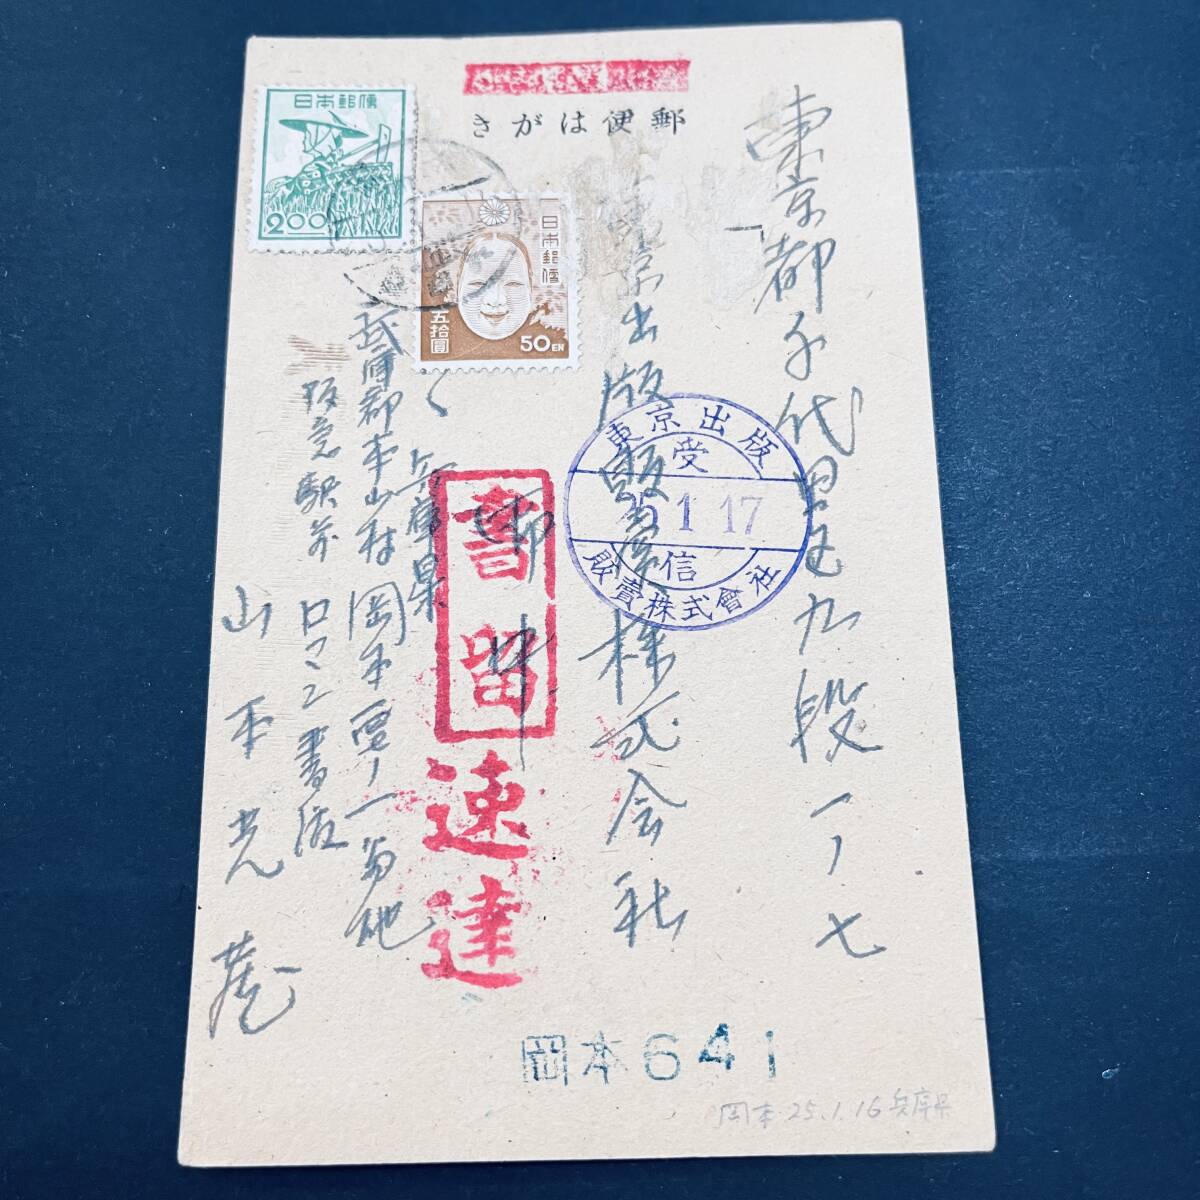 郵便はがき
日本郵便
2.00
日本郵便
五拾圓
50EN
東京都千代田区九段一ノ七
東京出版販賣株式会社
御中
兵庫県
武庫郡本山村岡本
番地
阪急駅前
書店
山本光
書留
速達
東京出版
受
25 1 17
信
販賣株式會社
岡本641
岡本 25.1.16 兵庫县